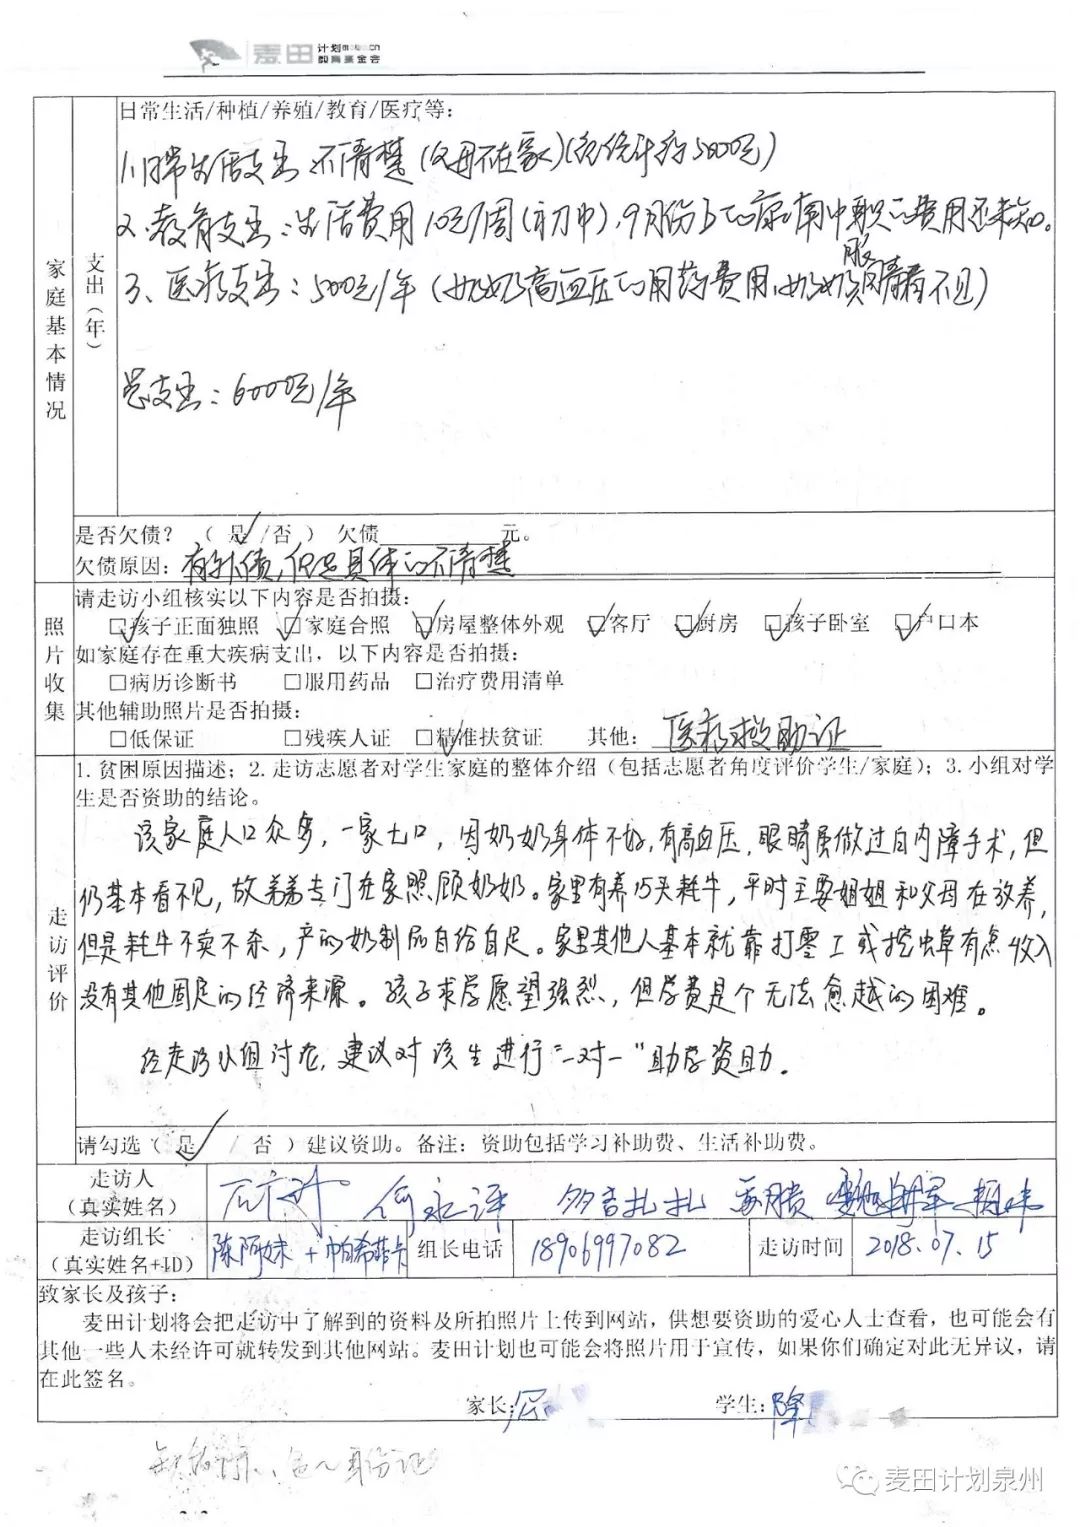 麦田 计划
教育基金会
日常生活/种植/养殖/教育/医疗等:
1.日常生活支出 不清楚(父母不在家)(预估计约5000元)
2.教育支出:生活费用10元/周(初中),9月份 中职的费用还未知。
3、医疗支出:500元/年(奶奶高血压的用药费用,奶奶眼睛看不见)
总支出:6000元/年
家庭基本情况
支出(年)
是否欠债? ( 是 /否 ) 欠债 元。
欠债原因: 有外债,但是具体的不清楚
照片收集
请走访小组核实以下内容是否拍摄:
□孩子正面独照 □家庭合照 □房屋整体外观 □客厅 □厨房 □孩子卧室 □户口本
如家庭存在重大疾病支出,以下内容是否拍摄:
□病历诊断书 □服用药品 □治疗费用清单
其他辅助照片是否拍摄:
□低保证 □残疾人证 □精准扶贫证 其他: 医疗救助证
走访评价
1.贫困原因描述;2.走访志愿者对学生家庭的整体介绍(包括志愿者角度评价学生/家庭);3.小组对学
生是否资助的结论。
该家庭人口众多,一家七口,因奶奶身体不好,有高血压,眼睛虽做过白内障手术,但
仍基本看不见,故弟弟专门在家照顾奶奶。家里有养15头耗牛,平时主要姐姐和父母在放养,
但是耗牛不卖不杀,产的奶制品自给自足。家里其他人基本就靠打零工或挖虫草有点收入
没有其他固定的经济来源。孩子求学愿望强烈,但学费是个无法愈越的困难。
经走访小组讨论,建议对该生进行“一对一”助学资助。
请勾选 ( 是 / 否 ) 建议资助。备注: 资助包括学习补助费、生活补助费。
走访人
(真实姓名)
何永评 多吉扎扎
走访组长
(真实姓名+ID)
陈阿妹+帕希菲卡
组长电话
18906997082
走访时间
2018.07.15
致家长及孩子:
麦田计划将会把走访中了解到的资料及所拍照片上传到网站,供想要资助的爱心人士查看,也可能会有
其他一些人未经许可就转发到其他网站。麦田计划也可能会将照片用于宣传,如果你们确定对此无异议,请
在此签名。
家长: 学生:降
身份证
麦田计划泉州